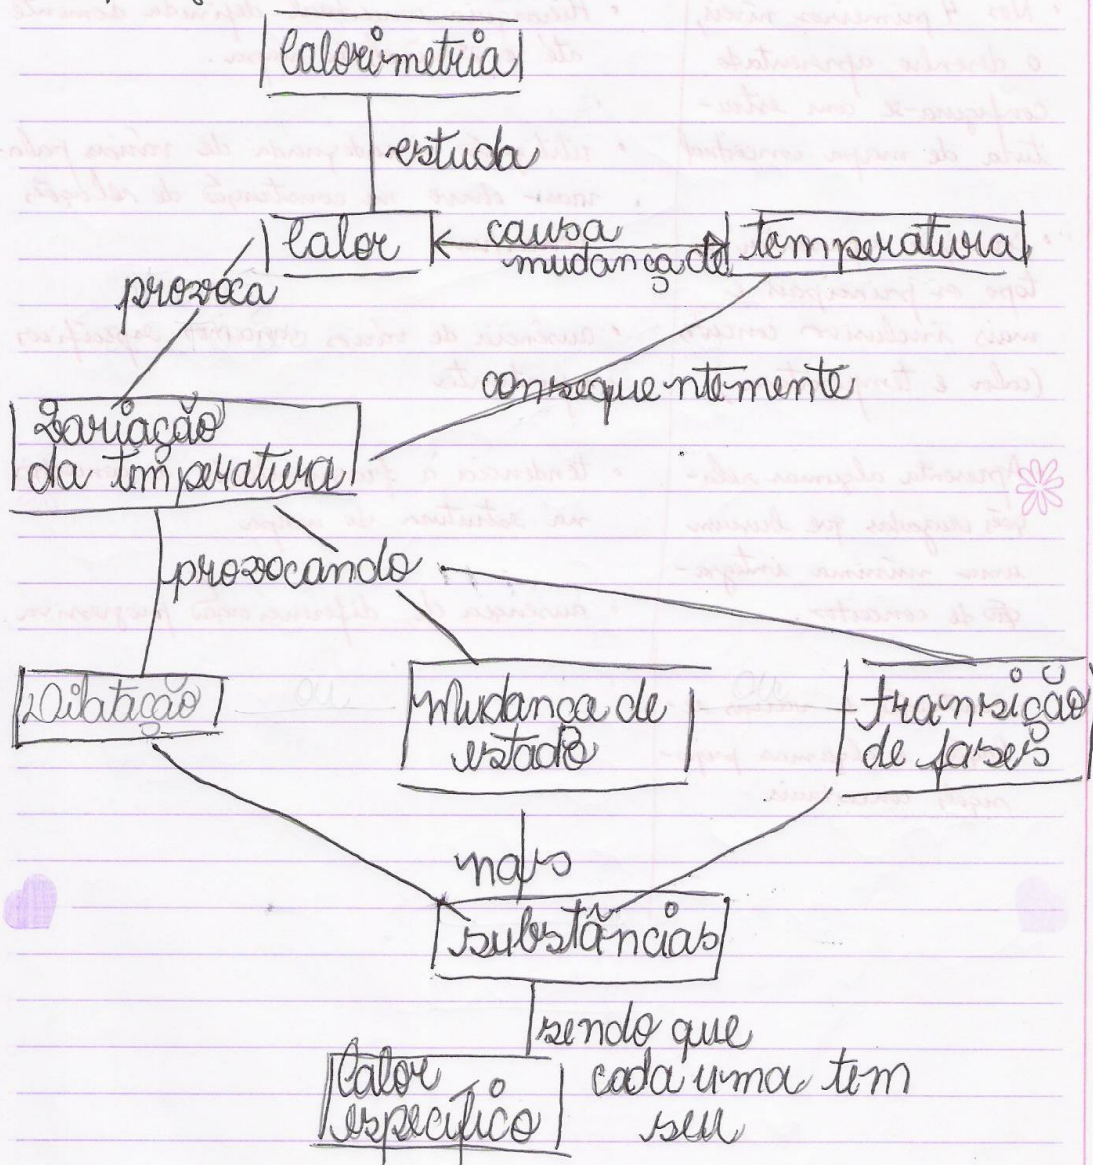 Calorimetria
estuda
Calor
causa
mudança de
temperatura
provoca
consequentemente
Variação
da temperatura
provocando
Dilatação
ou
Mudança de
estado
ou
transição
de fases
nas
substâncias
sendo que
cada uma tem
seu
Calor
específico